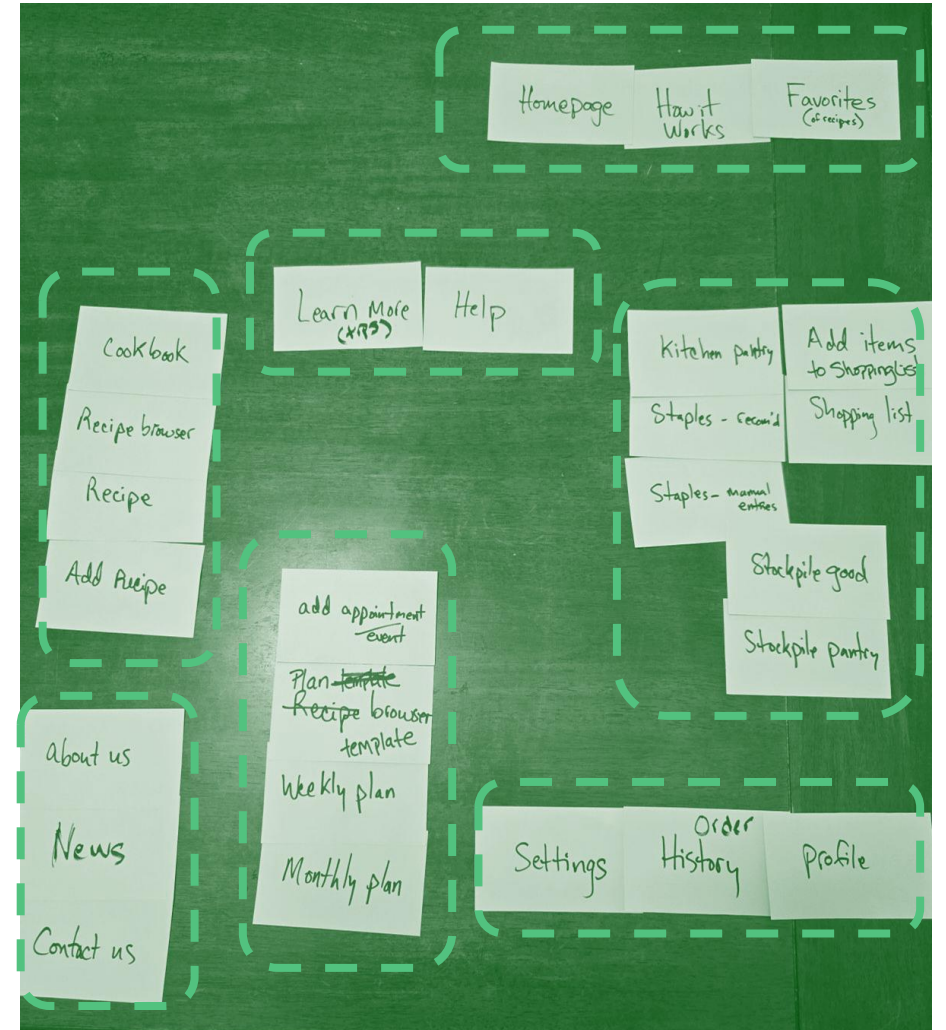 Homepage
How it
Works
Favorites
(of recipes)
Learn More
Help
Cookbook
Recipe browser
Recipe
Add Recipe
Kitchen pantry
Add items
to Shoppinglist
Staples - recom'd
Shopping list
Staples - manual
entries
Stockpile good
Stockpile pantry
add appointment
event
Plan template
Recipe browser
template
Weekly plan
Monthly plan
About us
News
Contact us
Settings
Order
History
Profile